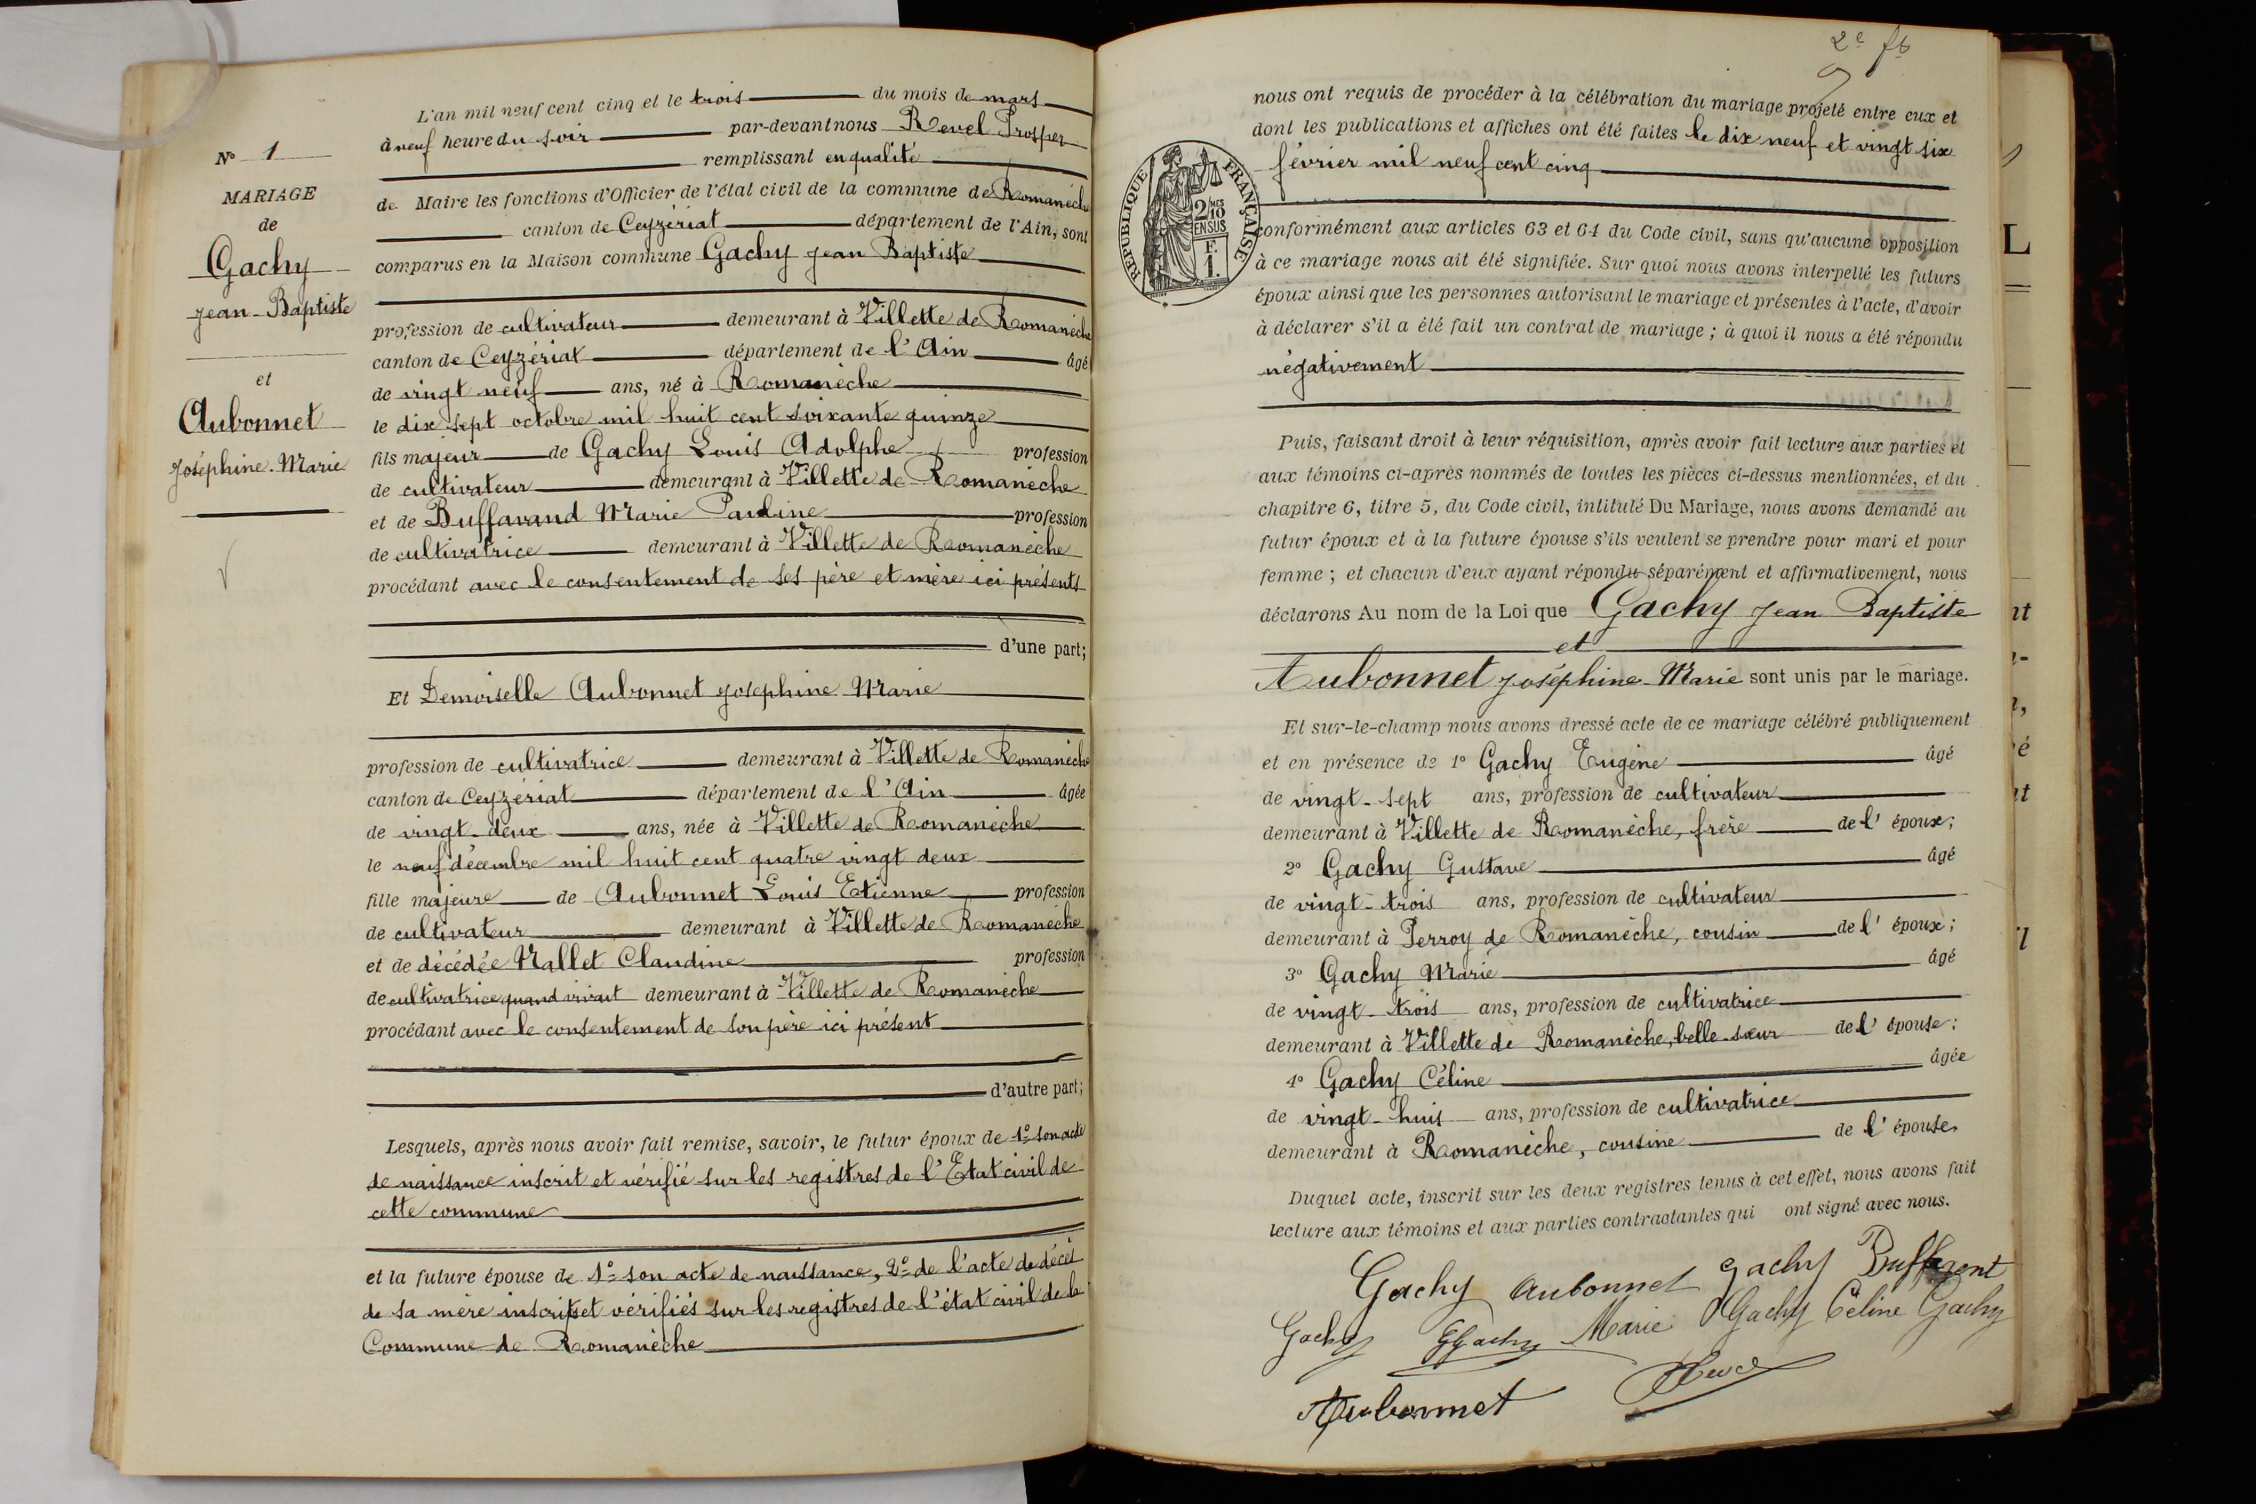 N° 1
MARIAGE
de
Gachy
Jean-Baptiste
et
Aubonnet
Joséphine-Marie
L'an mil neuf cent cinq et le trois du mois de mars
à neuf heure du soir par-devant nous Revel Prosper
remplissant en qualité
de Maire les fonctions d'Officier de l'état civil de la commune de Romanèche
canton de Ceyzériat département de l'Ain, sont
comparus en la Maison commune Gachy Jean Baptiste
profession de cultivateur demeurant à Villette de Romanèche
canton de Ceyzériat département de l'Ain âgé
de vingt neuf ans, né à Romanèche
le dix sept octobre mil huit cent soixante quinze
fils majeur de Gachy Louis Adolphe profession
de cultivateur demeurant à Villette de Romanèche
et de Buffavand Marie Pauline profession
de cultivatrice demeurant à Villette de Romanèche
procédant avec le consentement de ses père et mère ici présents
d'une part;
Et Demoiselle Aubonnet Joséphine Marie
profession de cultivatrice demeurant à Villette de Romanèche
canton de Ceyzériat département de l'Ain âgée
de vingt-deux ans, née à Villette de Romanèche
le neuf décembre mil huit cent quatre vingt deux
fille majeure de Aubonnet Louis Etienne profession
de cultivateur demeurant à Villette de Romanèche
et de décédée Vallet Claudine profession
de cultivatrice quand vivait demeurant à Villette de Romanèche
procédant avec le consentement de son père ici présent
d'autre part;
Lesquels, après nous avoir fait remise, savoir, le futur époux de 1° son acte
de naissance inscrit et vérifié sur les registres de l'Etat civil de
cette commune
et la future épouse de 1° son acte de naissance, 2° de l'acte de décès
de sa mère inscrits et vérifiés sur les registres de l'état civil de la
Commune de Romanèche
2e ft
nous ont requis de procéder à la célébration du mariage projeté entre eux et
dont les publications et affiches ont été faites le dix neuf et vingt six
février mil neuf cent cinq
RÉPUBLIQUE FRANÇAISE
2/10MES
EN SUS
F.
1.
conformément aux articles 63 et 64 du Code civil, sans qu'aucune opposition
à ce mariage nous ait été signifiée. Sur quoi nous avons interpellé les futurs
époux ainsi que les personnes autorisant le mariage et présentes à l'acte, d'avoir
à déclarer s'il a été fait un contrat de mariage; à quoi il nous a été répondu
négativement
Puis, faisant droit à leur réquisition, après avoir fait lecture aux parties et
aux témoins ci-après nommés de toutes les pièces ci-dessus mentionnées, et du
chapitre 6, titre 5, du Code civil, intitulé Du Mariage, nous avons demandé au
futur époux et à la future épouse s'ils veulent se prendre pour mari et pour
femme; et chacun d'eux ayant répondu séparément et affirmativement, nous
déclarons Au nom de la Loi que Gachy Jean Baptiste
et
Aubonnet Joséphine-Marie sont unis par le mariage.
Et sur-le-champ nous avons dressé acte de ce mariage célébré publiquement
et en présence de 1° Gachy Eugène âgé
de vingt-sept ans, profession de cultivateur
demeurant à Villette de Romanèche, frère de l'époux;
2° Gachy Gustave âgé
de vingt-trois ans, profession de cultivateur
demeurant à Perroy de Romanèche, cousin de l'époux;
3° Gachy Marie âgé
de vingt-trois ans, profession de cultivatrice
demeurant à Villette de Romanèche, belle-sœur de l'épouse;
4° Gachy Céline âgée
de vingt-huis ans, profession de cultivatrice
demeurant à Romanèche, cousine de l'épouse,
Duquel acte, inscrit sur les deux registres tenus à cet effet, nous avons fait
lecture aux témoins et aux parties contractantes qui ont signé avec nous.
Gachy Aubonnet Gachy
Gachy GGachy Marie Gachy Céline Gachy
Aubonnet Revel